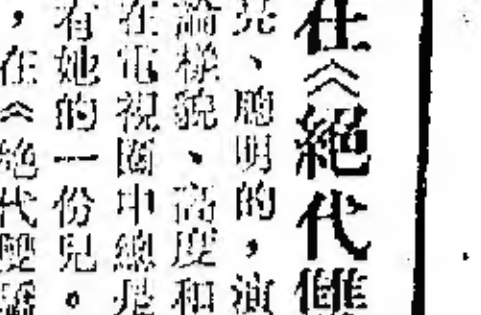 在《絕代雙
亮、聰明的，演
論樣貌、高度和
在電視圈中總是
有她的一份兒。
，在《絕代雙驕